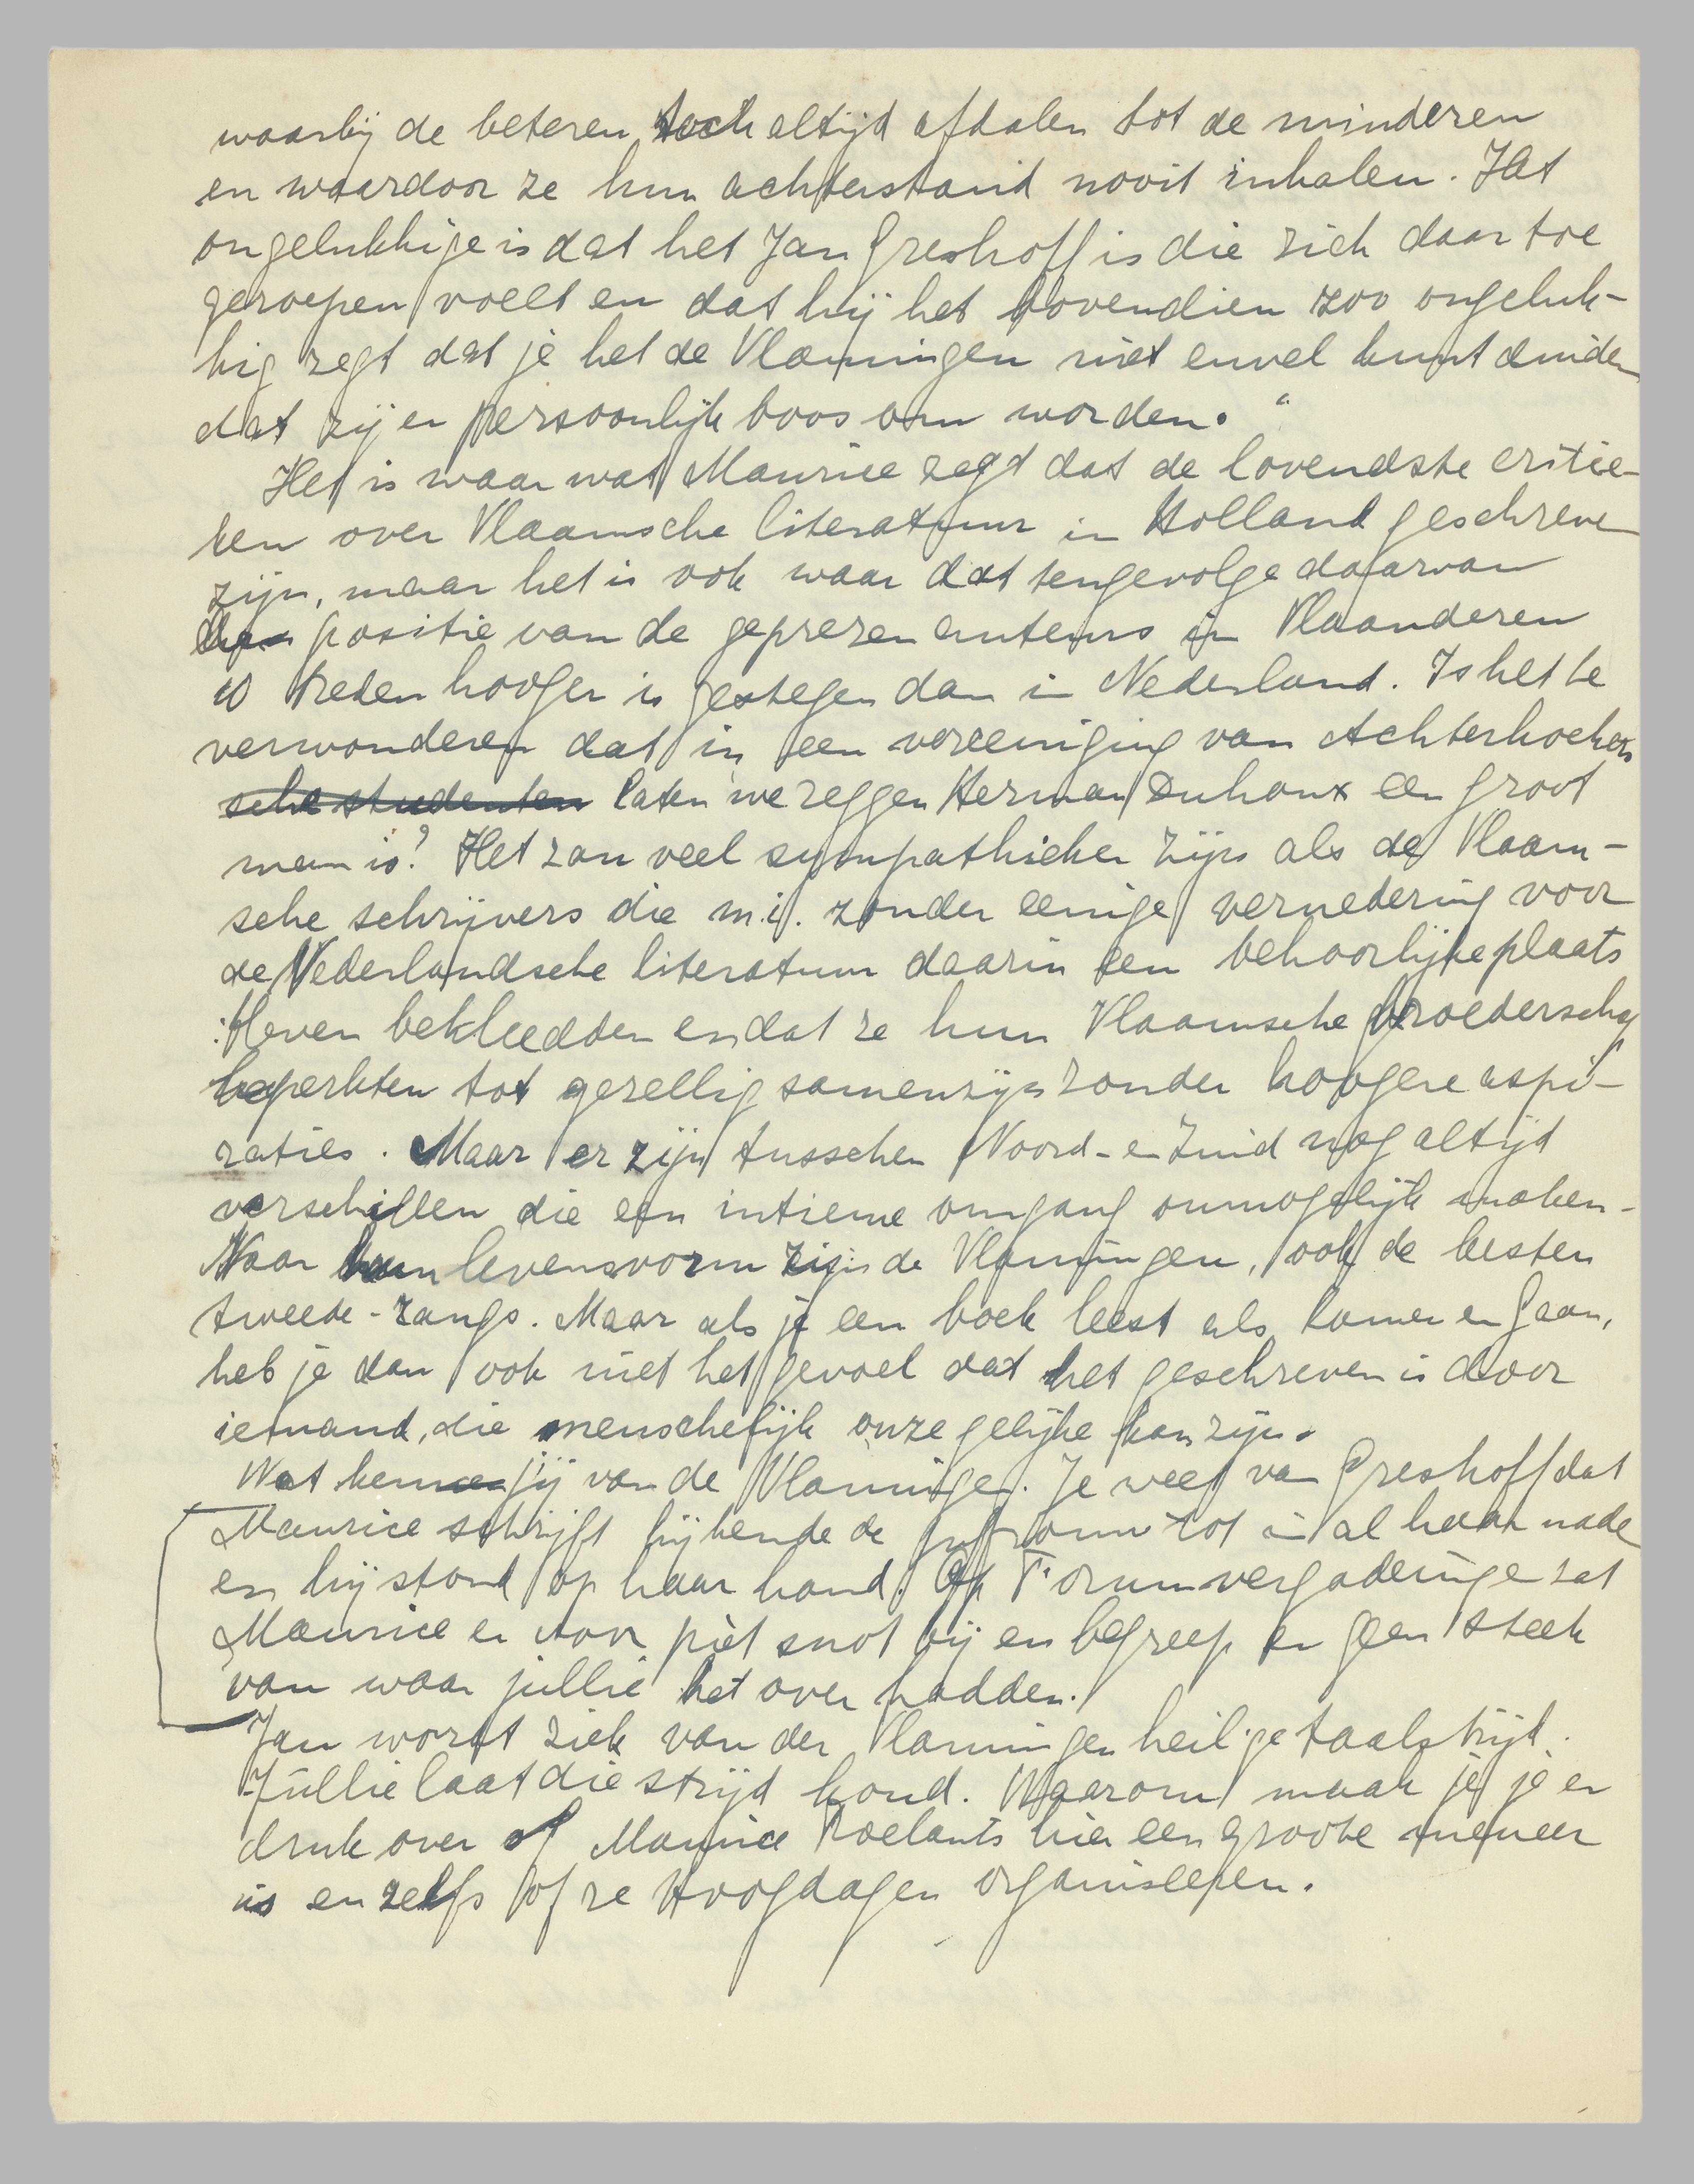 waarbij de beteren toch altijd afdalen tot de minderen
en waardoor ze hun achterstand nooit inhalen. Het
ongelukkige is dat het Jan Greshoff is die zich daar toe
geroepen voelt en dat hij het bovendien zoo ongeluk-
kig zegt dat je het de Vlamingen niet euvel kunt duiden
dat zij er persoonlijk boos om worden."
Het is waar wat Maurice zegt dat de lovendste critie-
ken over Vlaamsche literatuur in Holland geschreven
zijn, maar het is ook waar dat tengevolge daarvan
de positie van de geprezen auteurs in Vlaanderen
10 treden hooger is gestegen dan in Nederland. Is het te
verwonderen dat in een vereeniging van Achterhoekers
sche studenten laten we zeggen Herman een groot
man is? Het zou veel sympathieker zijn als de Vlaam-
sche schrijvers die m.i. zonder eenige vernedering voor
de Nederlandsche literatuur daarin een behoorlijke plaats
bleven bekleedden en dat ze hun Vlaamsche broederschap
beperkten tot gezellig samenzijn zonder hoogere aspi-
raties. Maar er zijn tusschen Noord- en Zuid nog altijd
verschillen die een intieme omgang onmogelijk maken.
Naar hun levensvorm zijn de Vlamingen, ook de besten
tweede-rangs. Maar als je een boek leest als Komen en Gaan,
heb je dan ook niet het gevoel dat het geschreven is door
iemand, die menschelijk onze gelijke kan zijn.
Wat ken jij van de Vlamingen. Je weet van Greshoff dat
Maurice schrijft hij kende de tot in al haar
en hij stond op haar hand. Op Forumvergaderingen zat
Maurice er voor piet snot bij en begreep er geen steek
van waar jullie het over hadden.
Jan wordt ziek van der Vlamingen heilige taalstrijd.
Jullie laat die strijd koud. Waarom maak je je er
druk over of Maurice Roelants hier een groote meneer
is en zelfs of ze Hoogdagen organiseeren.